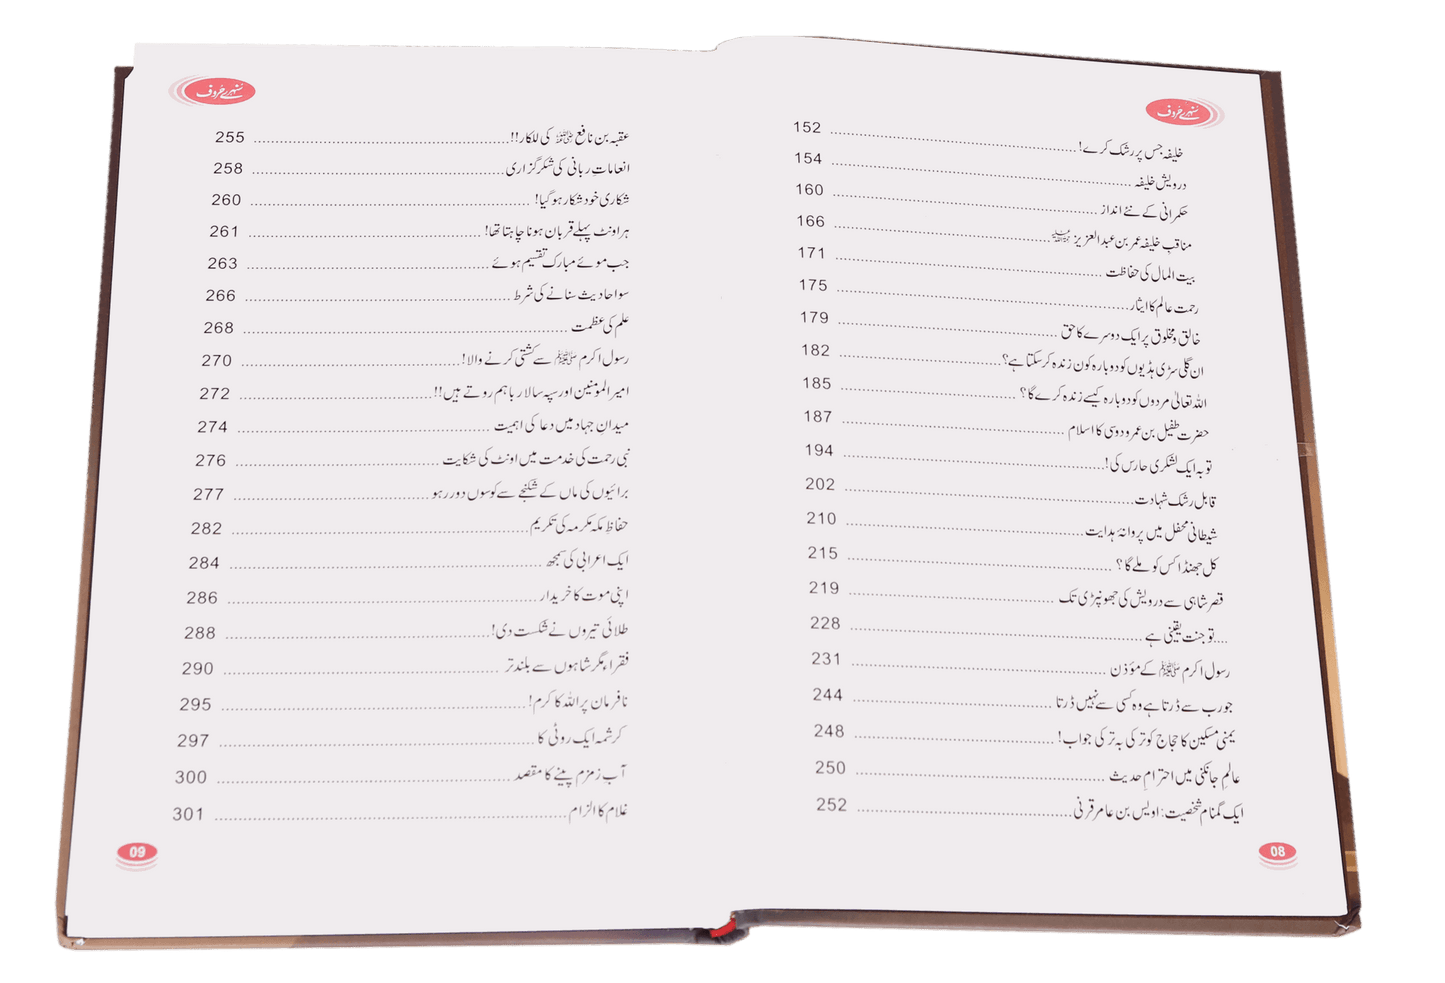 سنہرے حروف
خلیفہ جس پر رشک کرے! 152
درویش خلیفہ 154
حکمرانی کے نئے انداز 160
مناقبِ خلیفہ عمر بن عبدالعزیز رحمہ اللہ 166
بیت المال کی حفاظت 171
رحمت عالم کا ایثار 175
خالق و مخلوق پر ایک دوسرے کا حق 179
ان گلی سڑی ہڈیوں کو دوبارہ کون زندہ کرسکتا ہے؟ 182
اللہ تعالیٰ مردوں کو دوبارہ کیسے زندہ کرے گا؟ 185
حضرت طفیل بن عمرو دوسی کا اسلام 187
توبہ ایک لشکری حارس کی! 194
قابل رشک شہادت 202
شیطانی محفل میں پروانۂ ہدایت 210
کل جھنڈا کس کو ملے گا؟ 215
قصر شاہی سے درویش کی جھونپڑی تک 219
....تو جنت یقینی ہے 228
رسول اکرم ﷺ کے مؤذن 231
جو رب سے ڈرتا ہے وہ کسی سے نہیں ڈرتا 244
یمنی مسکین کا حجاج کو ترکی بہ ترکی جواب! 248
عالمِ جانکنی میں احترامِ حدیث 250
ایک گمنام شخصیت: اویس بن عامر قرنی 252
08
سنہرے حروف
عقبہ بن نافع ﷺ کی للکار!! 255
انعاماتِ ربانی کی شکر گزاری 258
شکاری خود شکار ہو گیا! 260
ہر اونٹ پہلے قربان ہونا چاہتا تھا! 261
جب موئے مبارک تقسیم ہوئے 263
سو احادیث سنانے کی شرط 266
علم کی عظمت 268
رسول اکرم ﷺ سے کشتی کرنے والا! 270
امیر المؤمنین اور سپہ سالار باہم روتے ہیں!! 272
میدانِ جہاد میں دعا کی اہمیت 274
نبی رحمت کی خدمت میں اونٹ کی شکایت 276
برائیوں کی ماں کے شکنجے سے کوسوں دور رہو 277
حفاظِ مکہ مکرمہ کی تکریم 282
ایک اعرابی کی سمجھ 284
اپنی موت کا خریدار 286
طلائی تیروں نے شکست دی! 288
فقراء مگر شاہوں سے بلند تر 290
نافرمان پر اللہ کا کرم! 295
کرشمہ ایک روٹی کا 297
آب زمزم پینے کا مقصد 300
غلام کا الزام 301
09